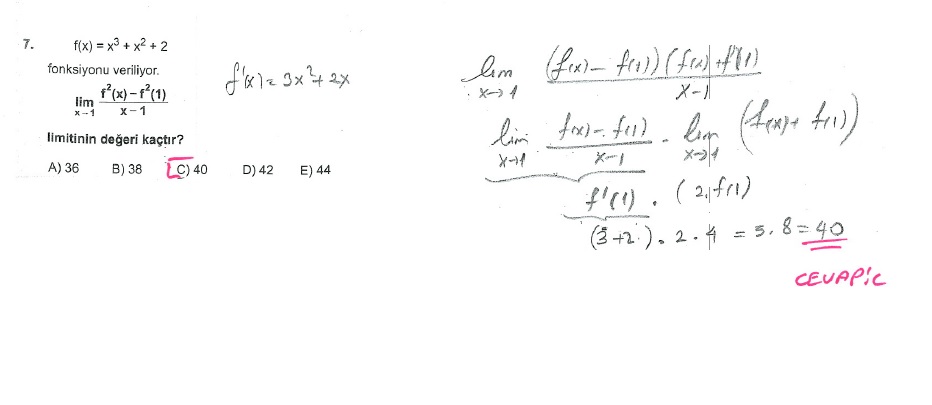 7. f(x) = x³ + x² + 2
fonksiyonu veriliyor.
lim x→1 f²(x) – f²(1) / x – 1
limitinin değeri kaçtır?
A) 36 B) 38 C) 40 D) 42 E) 44
f'(x) = 3x² + 2x
lim x→1 (f(x) – f(1)) (f(x) + f(1)) / x – 1
lim x→1 f(x) – f(1) / x – 1 . lim x→1 (f(x) + f(1))
f'(1) . (2, f(1)
(3 + 2) . 2 . 4 = 5 . 8 = 40
CEVAP: C